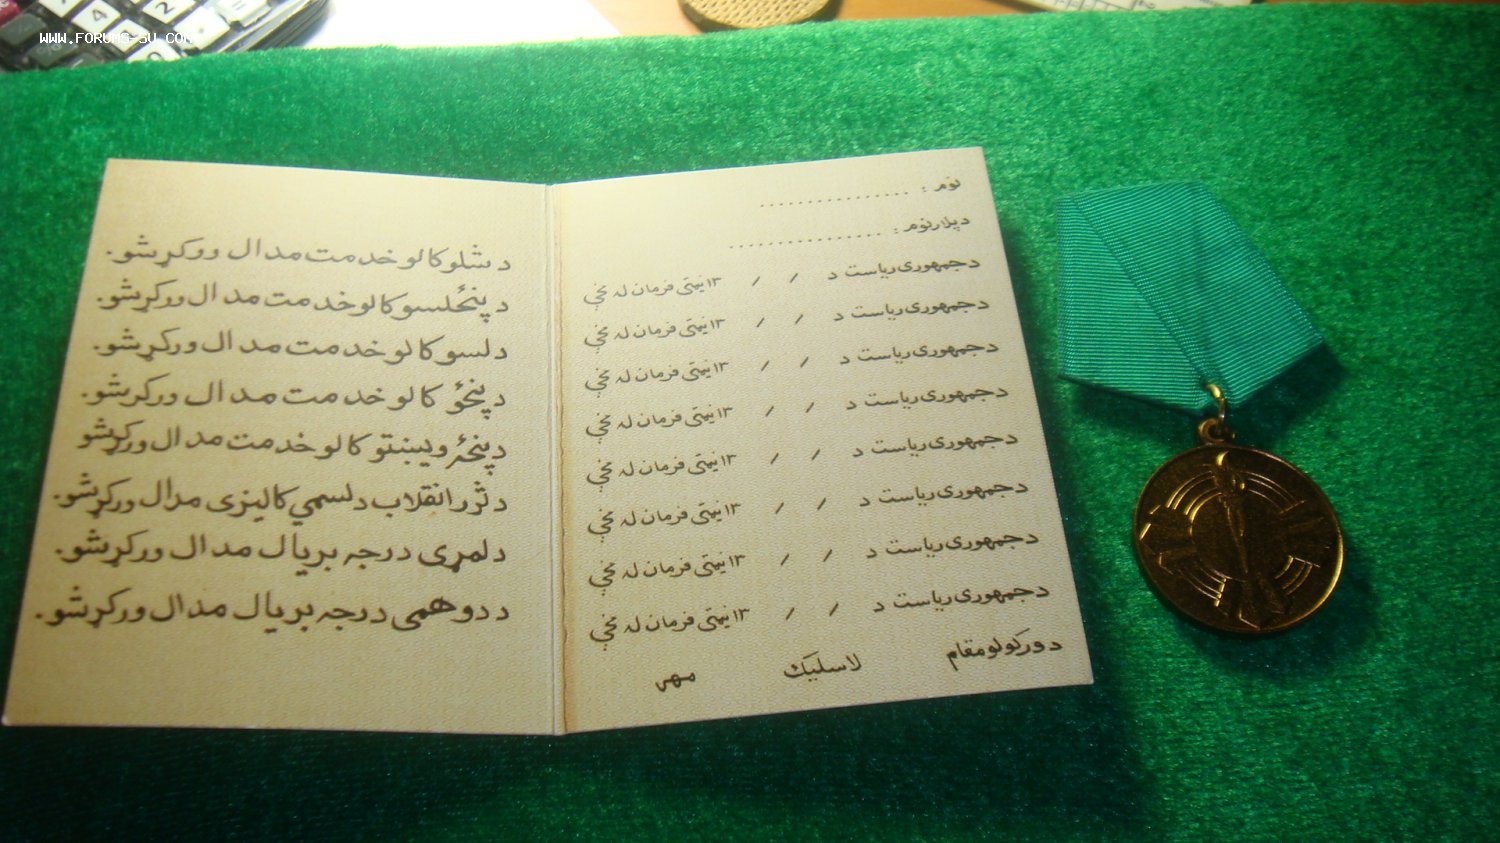 WWW.FORUMS-SU.COM
نوم : ................
د پلار نوم : ................
د جمهوری ریاست د / / ۱۳ نیټې فرمان له مخې
د جمهوری ریاست د / / ۱۳ نیټې فرمان له مخې
د جمهوری ریاست د / / ۱۳ نیټې فرمان له مخې
د جمهوری ریاست د / / ۱۳ نیټې فرمان له مخې
د جمهوری ریاست د / / ۱۳ نیټې فرمان له مخې
د جمهوری ریاست د / / ۱۳ نیټې فرمان له مخې
د جمهوری ریاست د / / ۱۳ نیټې فرمان له مخې
د جمهوری ریاست د / / ۱۳ نیټې فرمان له مخې
د ورکولو مقام لاسلیک مهر
د شلو کالو خدمت مدال ورکړ شو.
د پنځلسو کالو خدمت مدال ورکړ شو.
د لسو کالو خدمت مدال ورکړ شو.
د پنځو کالو خدمت مدال ورکړ شو.
د پنځه ویښتو کالو خدمت مدال ورکړ شو
د ثور انقلاب د لسمې کالیزی مدال ورکړ شو.
د لمړی درجه بریال مدال ورکړ شو.
د دوهمی درجه بریال مدال ورکړ شو.